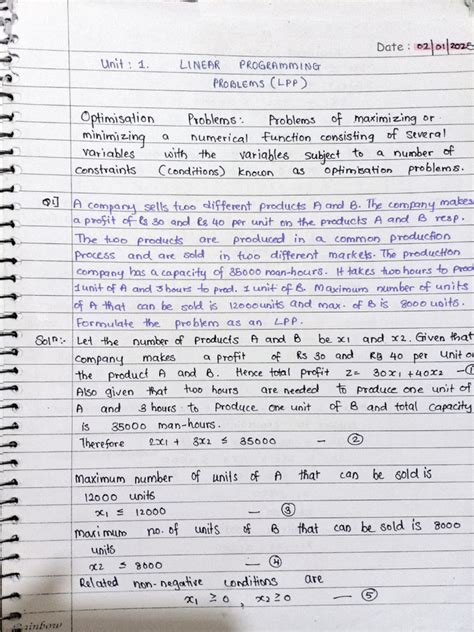 Date : 02/01/202
Unit : 1. LINEAR PROGRAMMING
PROBLEMS (LPP)
Optimisation Problems: Problems of maximizing or
minimizing a numerical function consisting of several
variables with the variables subject to a number of
constraints (conditions) known as optimisation problems.
Q1] A company sells two different products A and B. The company makes
a profit of Rs 30 and Rs 40 per unit on the products A and B resp.
The two products are produced in a common production
process and are sold in two different markets. The production
company has a capacity of 35000 man-hours. It takes two hours to prod
1 unit of A and 3 hours to prod. 1 unit of B. Maximum number of units
of A that can be sold is 12000 units and max. of B is 8000 units.
Formulate the problem as an LPP.
Soln:- Let the number of Products A and B be x1 and x2. Given that
company makes a profit of Rs 30 and RB 40 per unit on
the product A and B. Hence total profit Z= 30x1 +40x2 —①
Also given that two hours are needed to produce one unit of
A and 3 hours to produce one unit of B and total capacity
is 35000 man-hours.
Therefore 2x1 + 3x2 ≤ 35000 — ②
Maximum number of units of A that can be sold is
12000 units
x1 ≤ 12000 — ③
Maximum no. of units of B that can be sold is 8000
units
x2 ≤ 8000 — ④
Related non-negative conditions are
x1 ≥ 0 , x2 ≥ 0 — ⑤
Rainbow